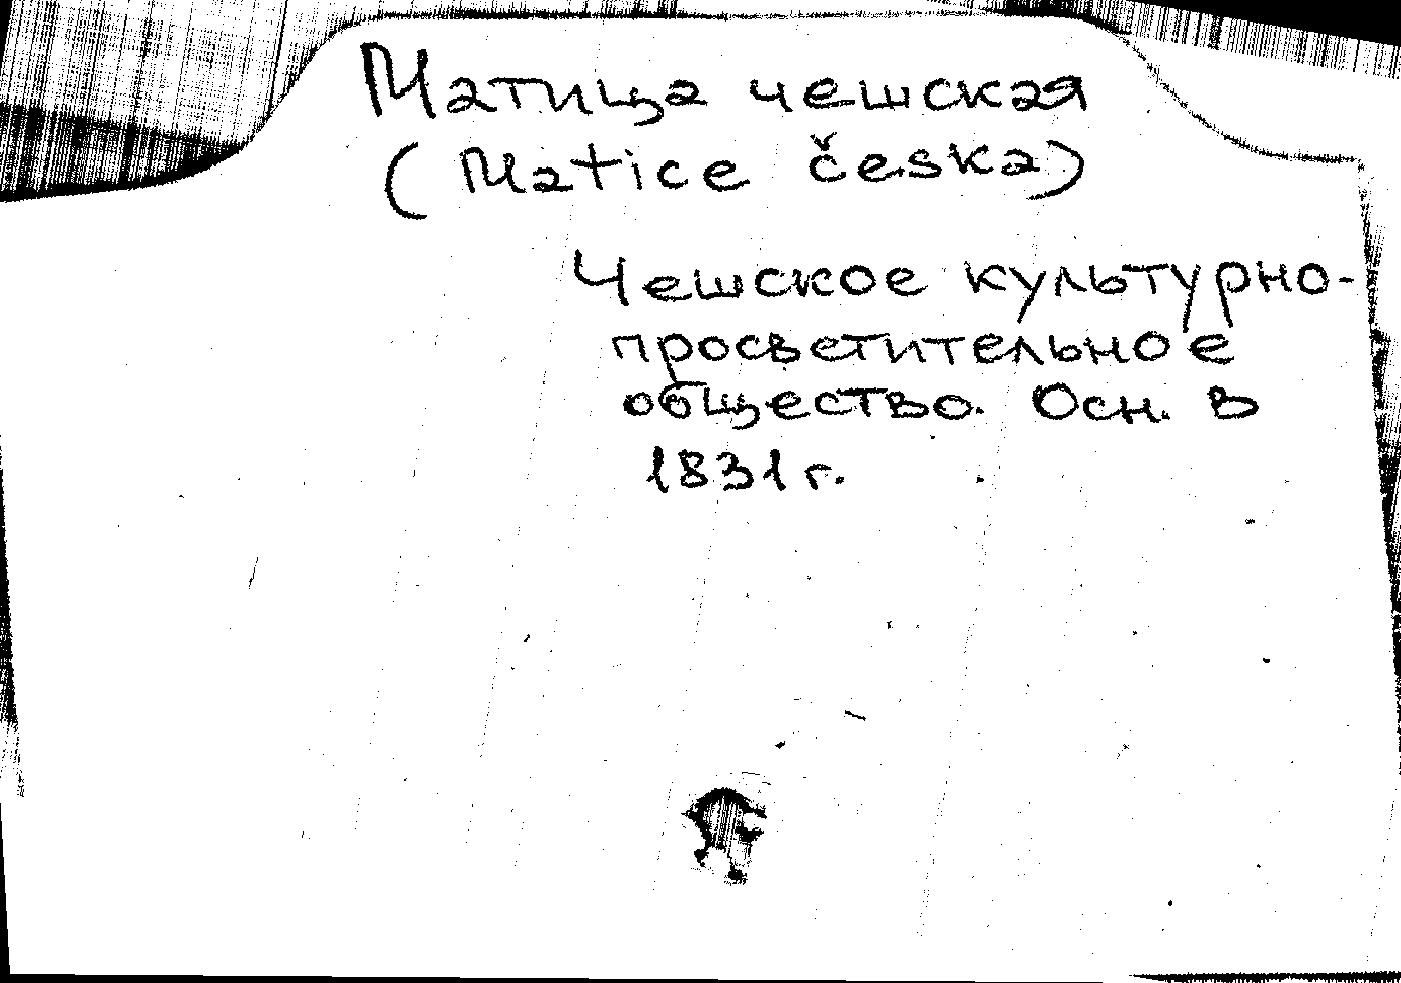 Матица чешская
(Matice česka)
Чешское культурно-
просветительное
общество. Осн. в
1831 г.